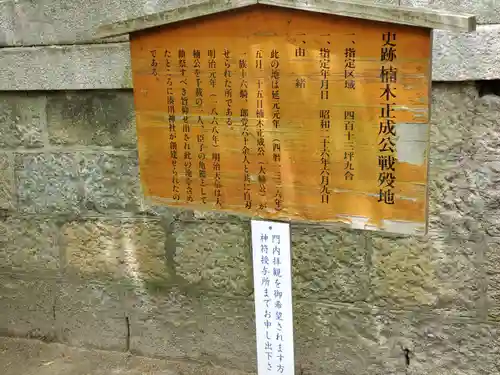 史跡 楠木正成公戦歿地
一、指定区域 四百十三坪九合
一、指定年月日 昭和二十六年六月九日
一、由緒
此の地は延元元年(西暦一三三六年)
五月二十五日楠木正成公(大楠公)が御
一族十六騎、郎党六十余人と共に自刃
せられた所である。
明治元年(一八六八年)明治天皇は大
楠公を千載の一人、臣子の亀鑑として
鎮祭すべき旨仰せ出され此の地を含め
たところに湊川神社が創建せられたの
である。
門内拝観を御希望されます方は
神符授与所までお申し出下さ